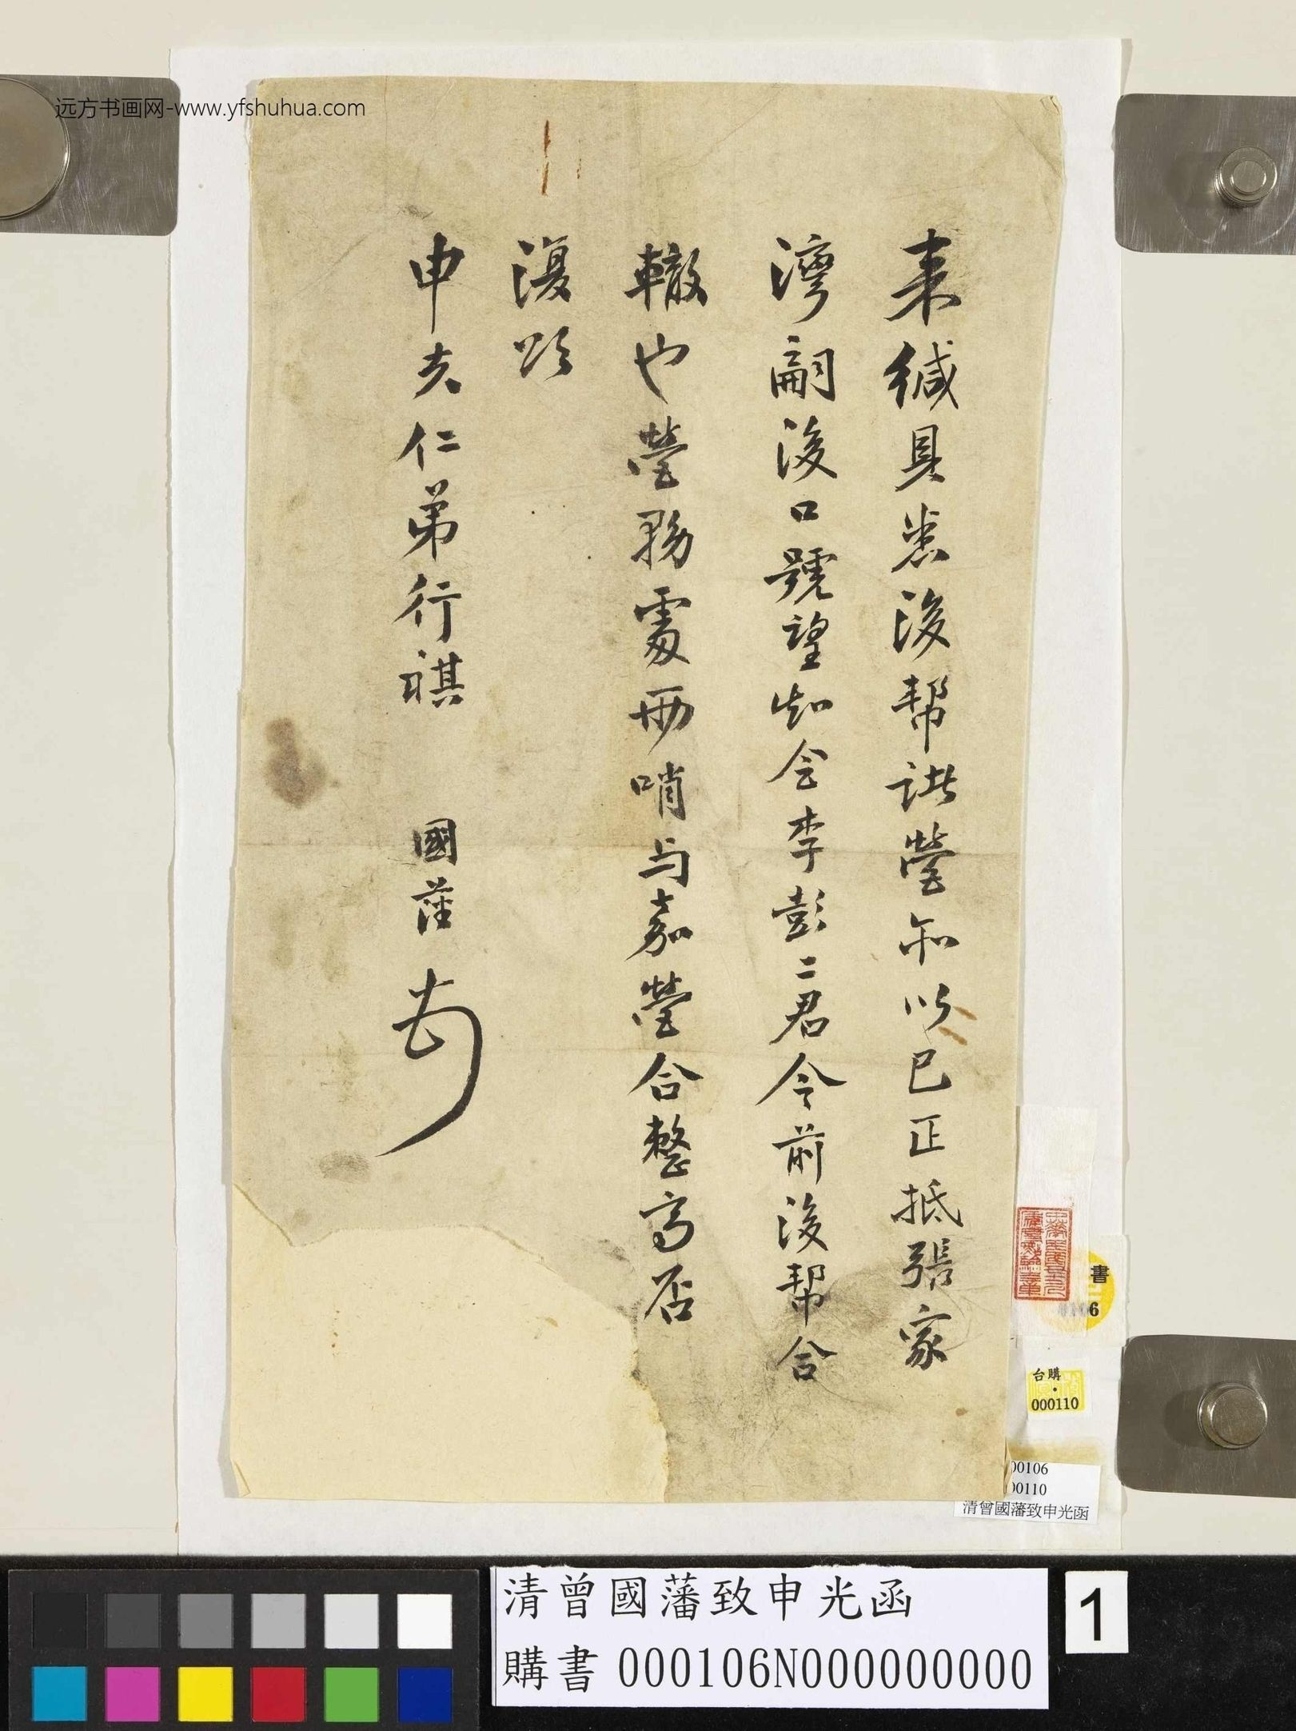 远方书画网-www.yfshuhua.com
来缄具悉後帮諸營知以巳正抵張家
灣嗣後口號望知会李彭二君令前後帮合
轍也營務處兩哨与嘉營合整否
復頌
申夫仁弟行祺
國藩
書
106
台購
000110
00106
00110
清曾國藩致申光函
清曾國藩致申光函
購書 000106N000000000
1